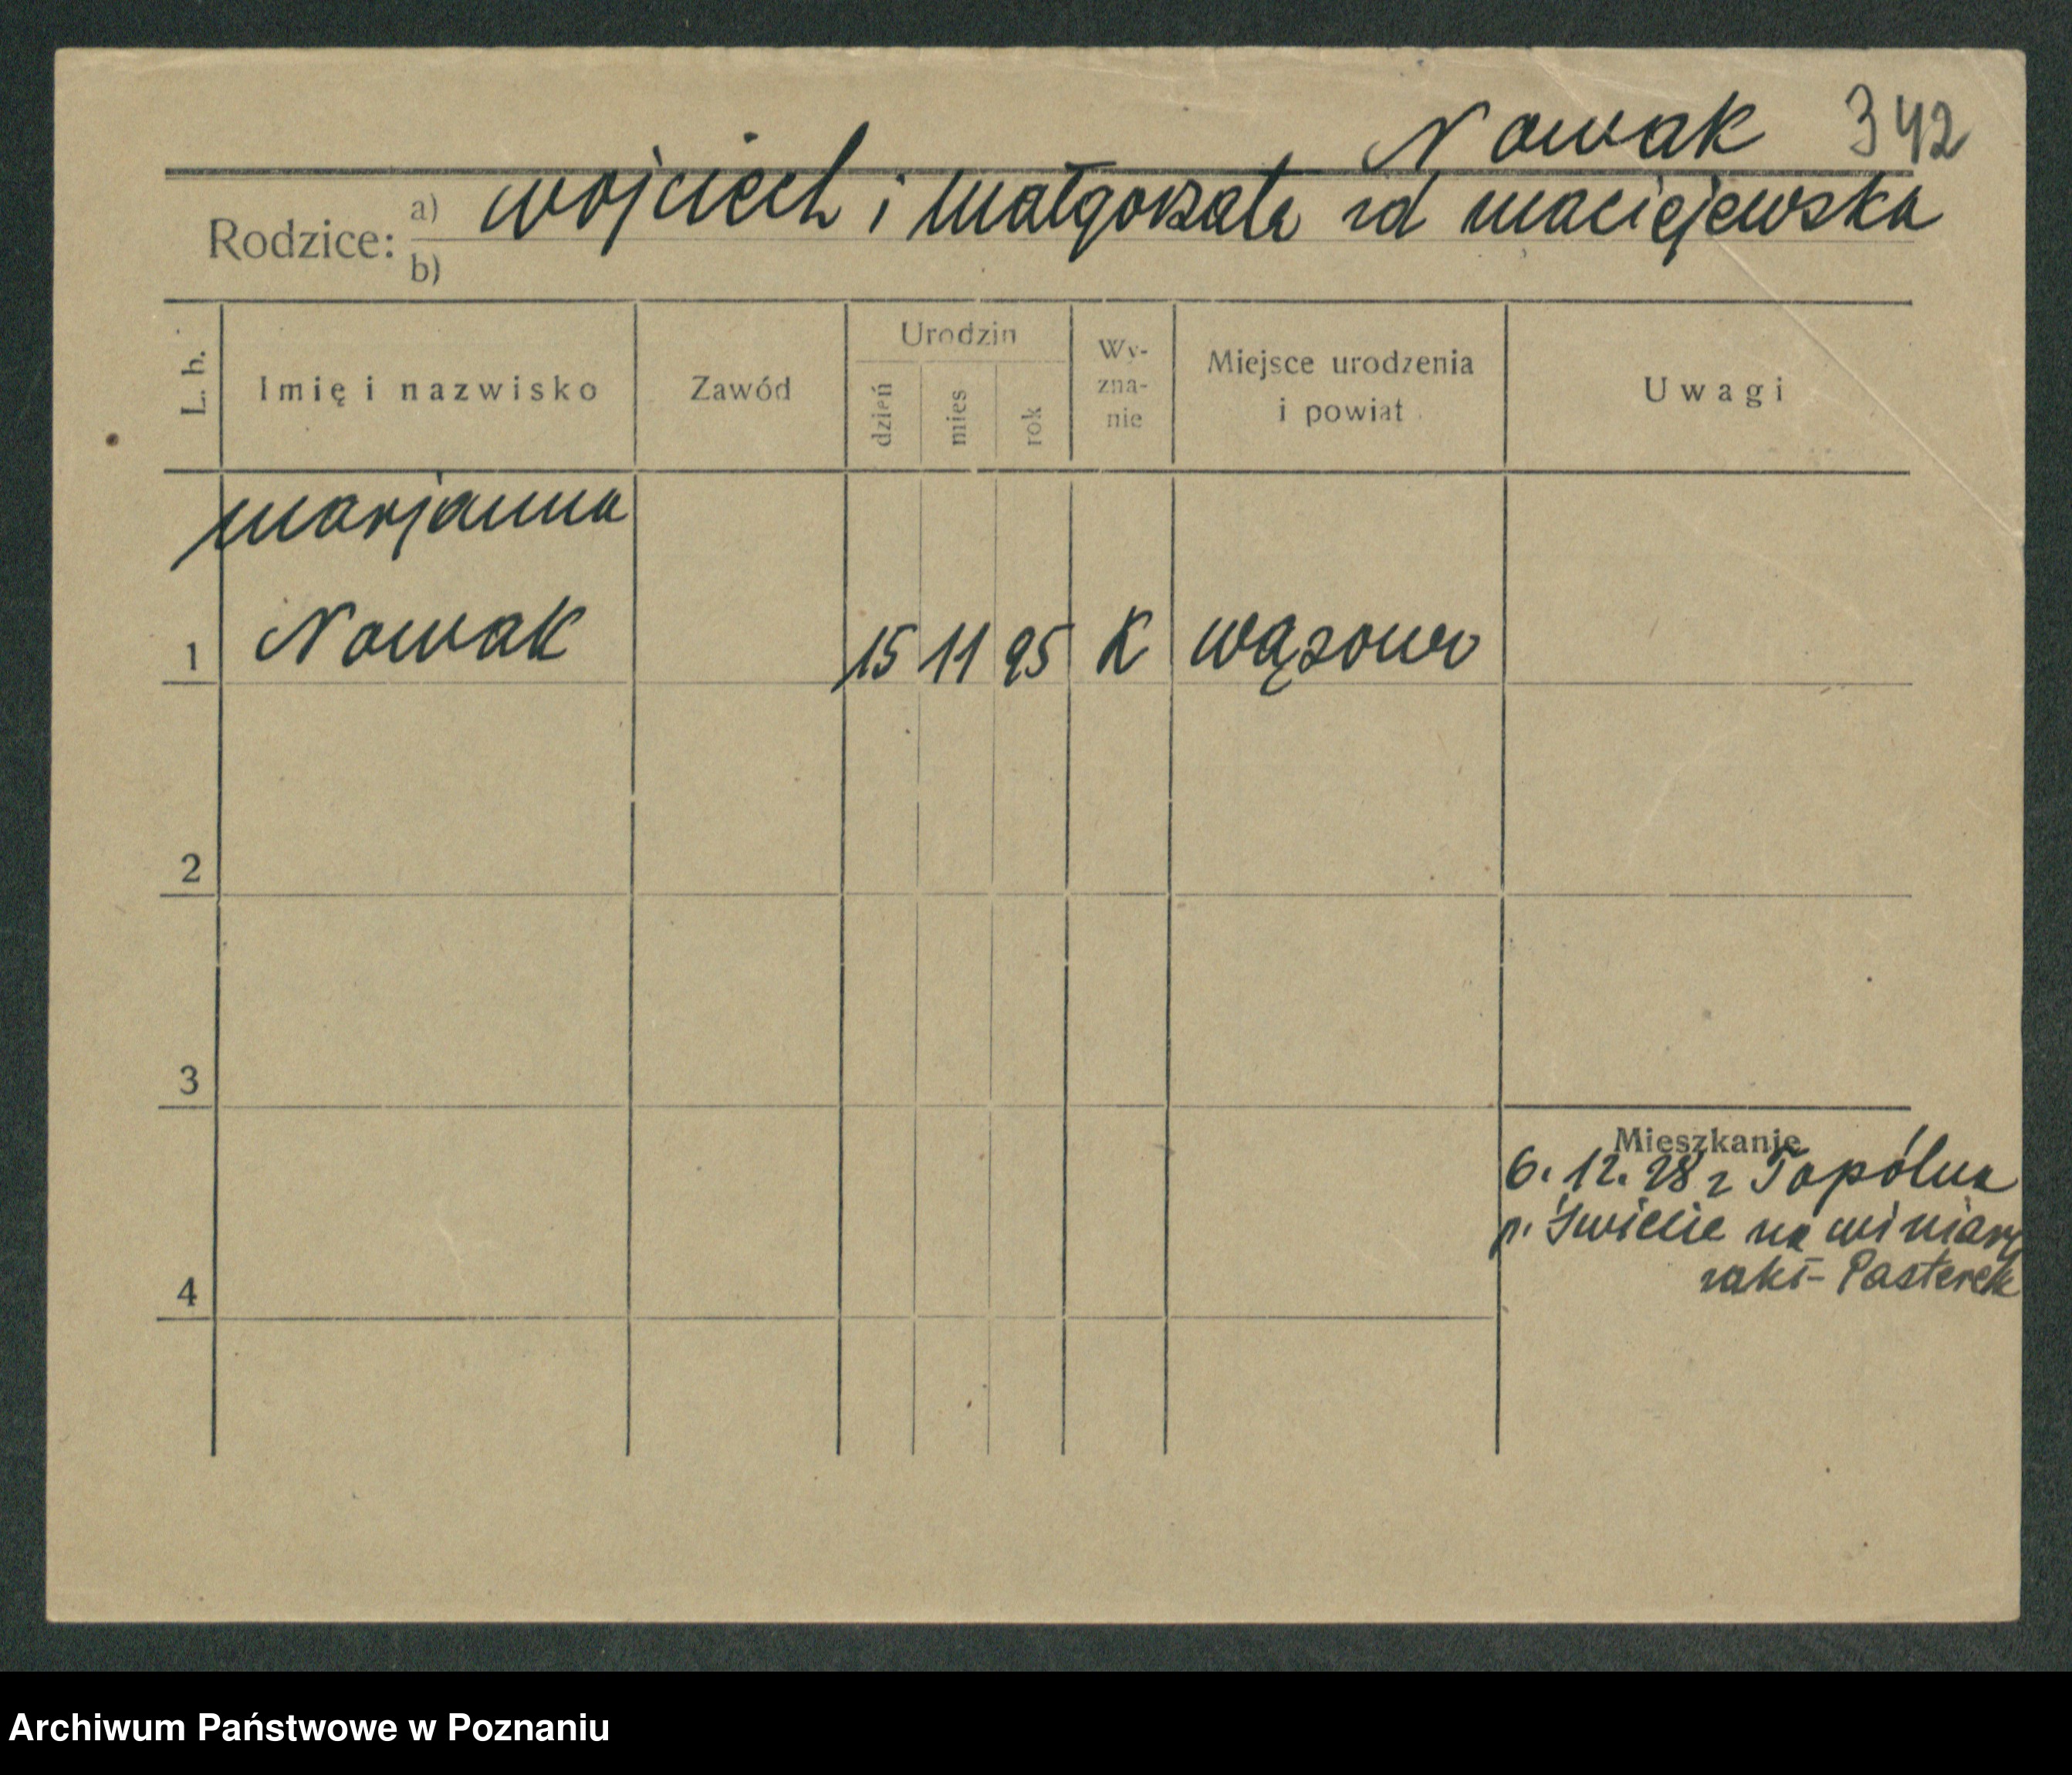 Nowak 342
Rodzice: a) Wojciech i Małgorzata zd Maciejewska
b)
L. b.
Imię i nazwisko
Zawód
Urodzin
dzień
mies
rok
Wy-
zna-
nie
Miejsce urodzenia
i powiat
Uwagi
Marjanna
1 Nowak 15 11 95 K Wąsowo
2
3
Mieszkanie
6. 12. 28 z Topólna
p. Świecie na winiary
4
Pasterek
Archiwum Państwowe w Poznaniu